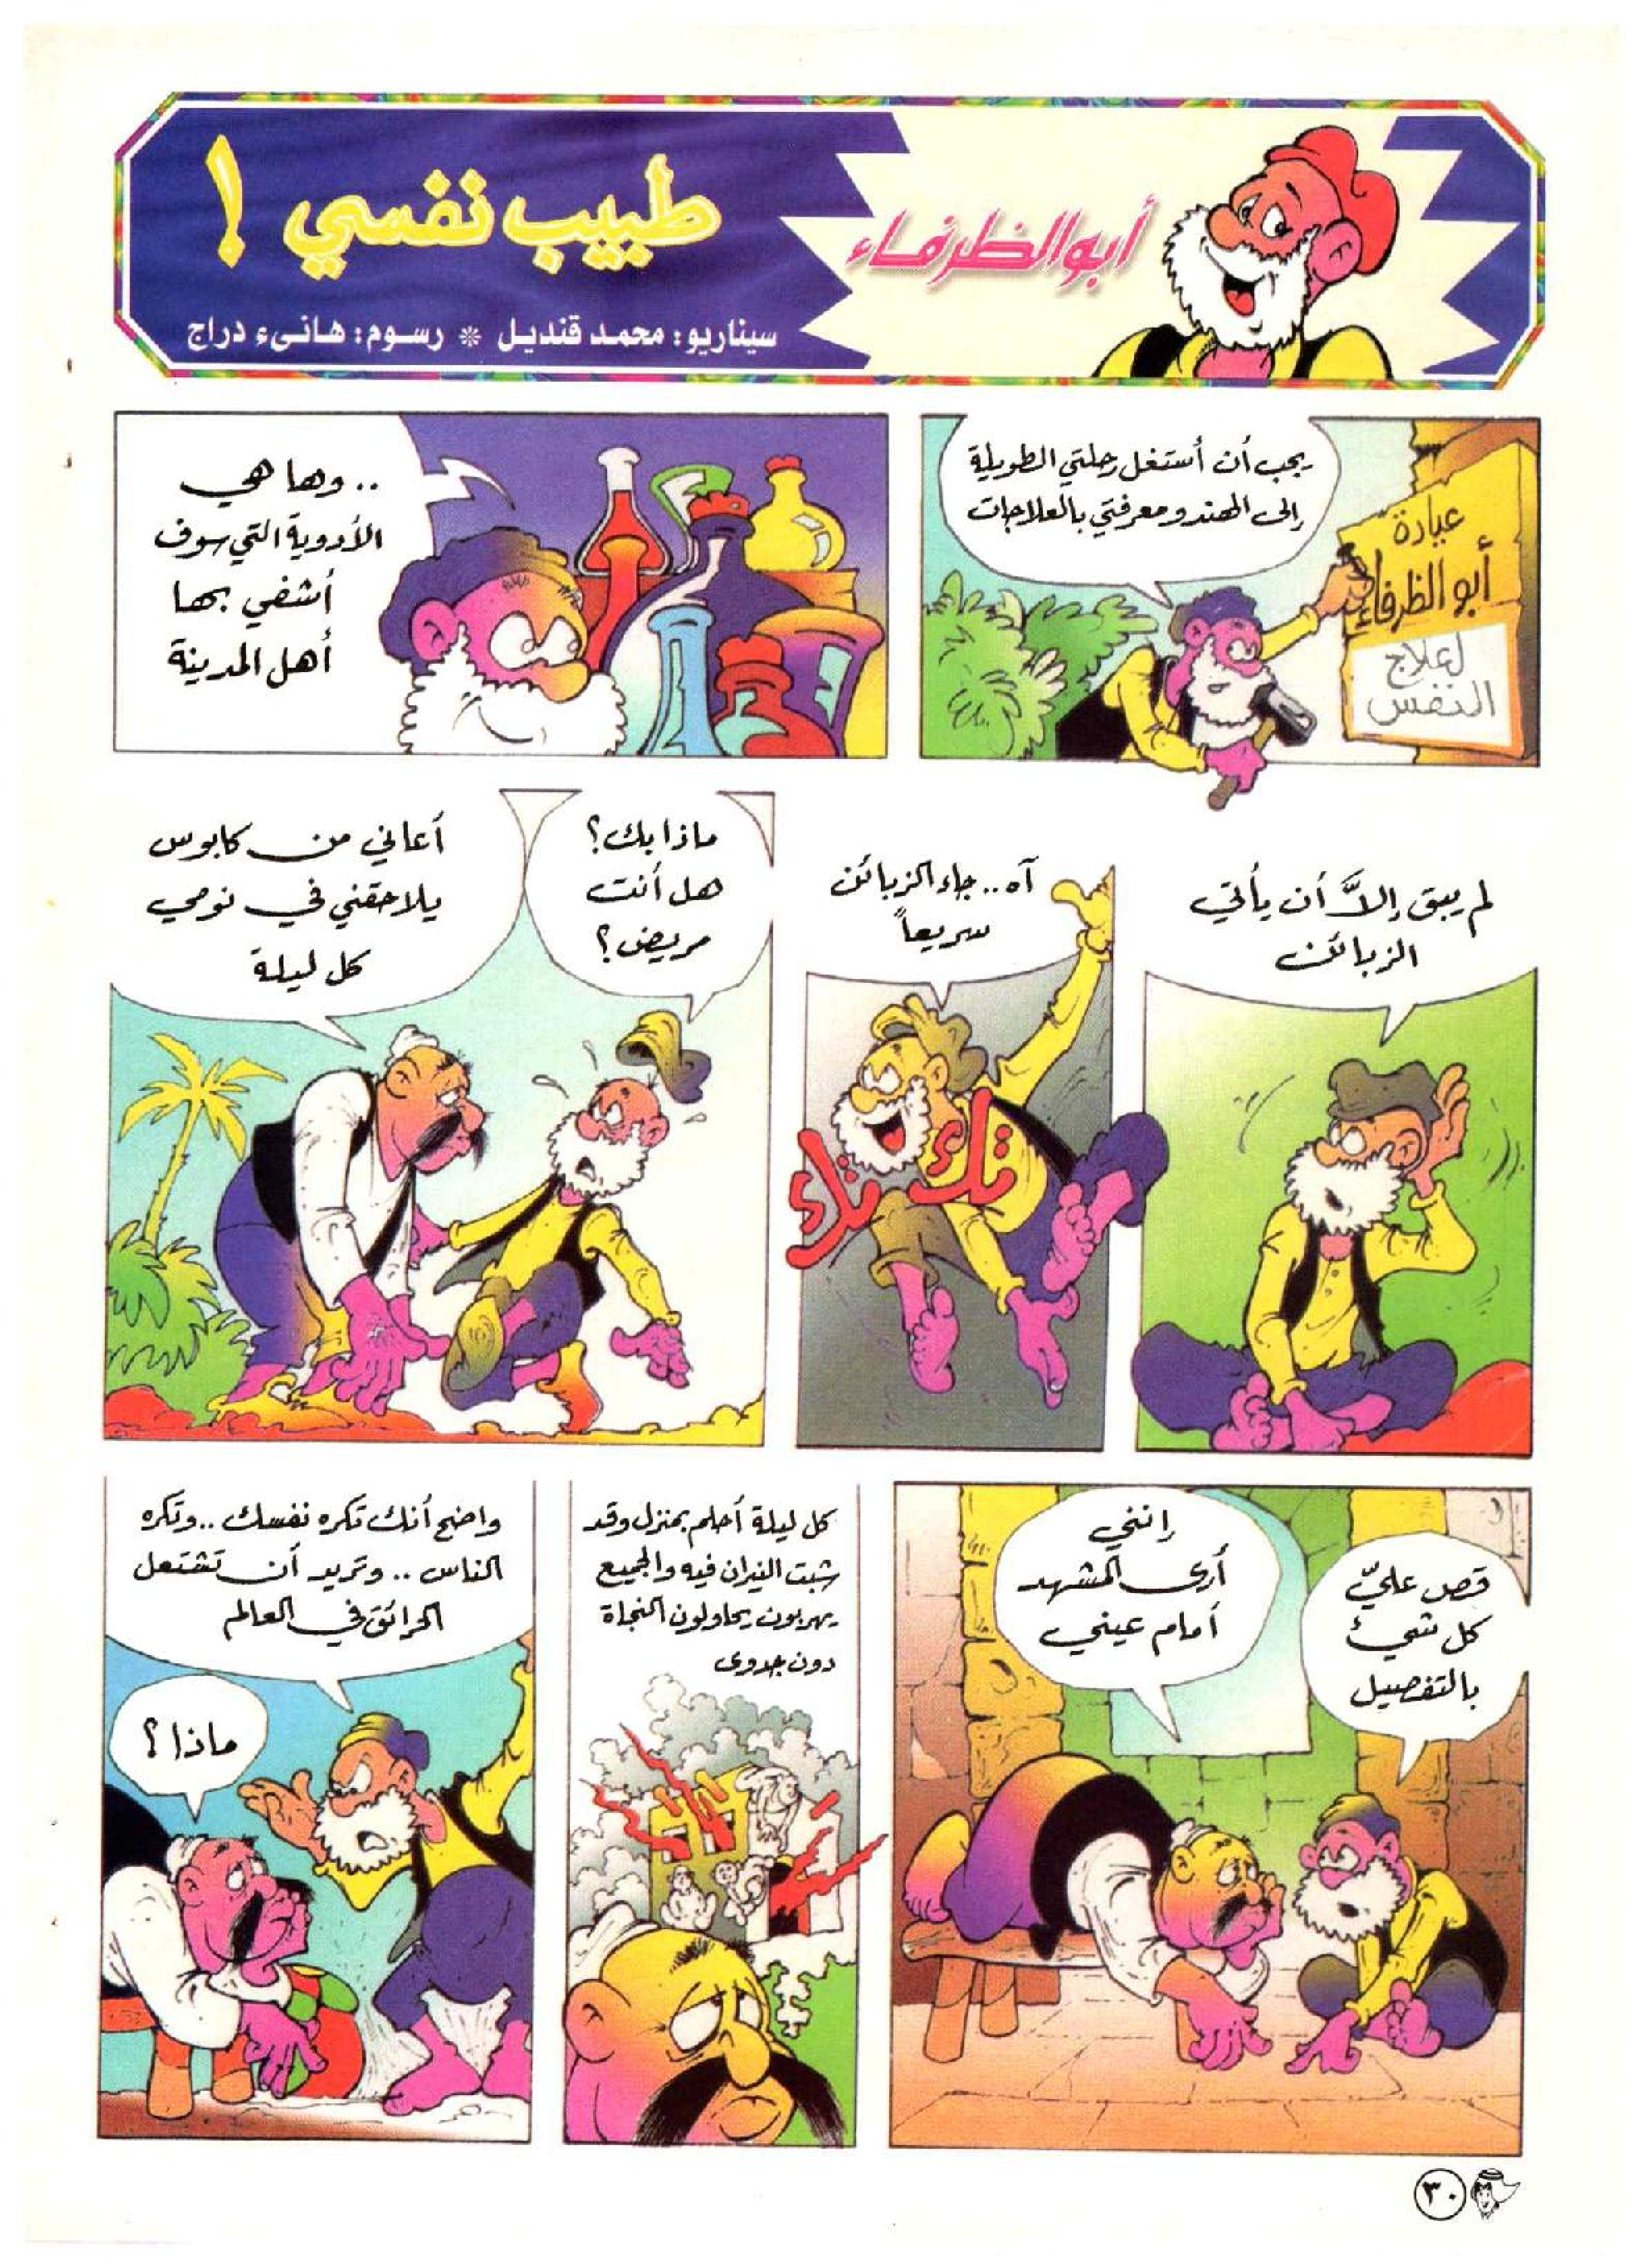 أبو الظرفاء
طبيب نفسي !
سيناريو: محمد قنديل * رسوم: هانىء دراج
يجب أن أستغل رحلتي الطويلة
إلى الهند ومعرفتي بالعلاجات
عيادة
أبو الظرفاء
لعلاج
النفس
.. وها هي
الأدوية التي سوف
أشفي بها
أهل المدينة
لم يبق إلاَّ أن يأتي
الزبائن
آه .. جاء الزبائن
سريعاً
تك
تك
ماذا بك؟
هل أنت
مريض؟
أعاني من كابوس
يلاحقني في نومي
كل ليلة
قص عليّ
كل شيئ
بالتفصيل
إنني
أرى المشهد
أمام عيني
كل ليلة أحلم بمنزل وقد
شبت النيران فيه والجميع
يهربون يحاولون النجاة
دون جدوى
واضح أنك تكره نفسك .. وتكره
الناس .. وتريد أن تشتعل
الحرائق في العالم
ماذا؟
٣٠